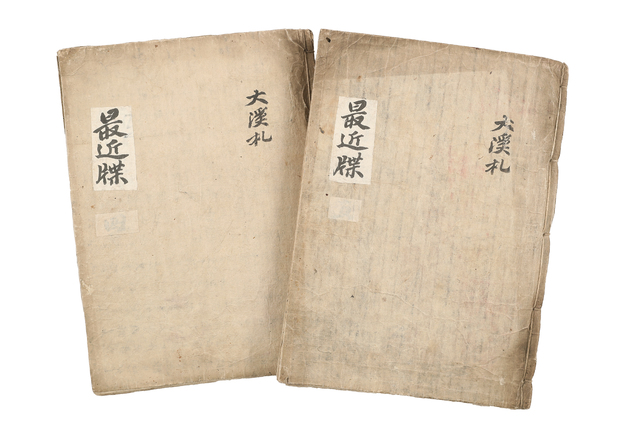 大溪札
最近牒
大溪札
最近牒